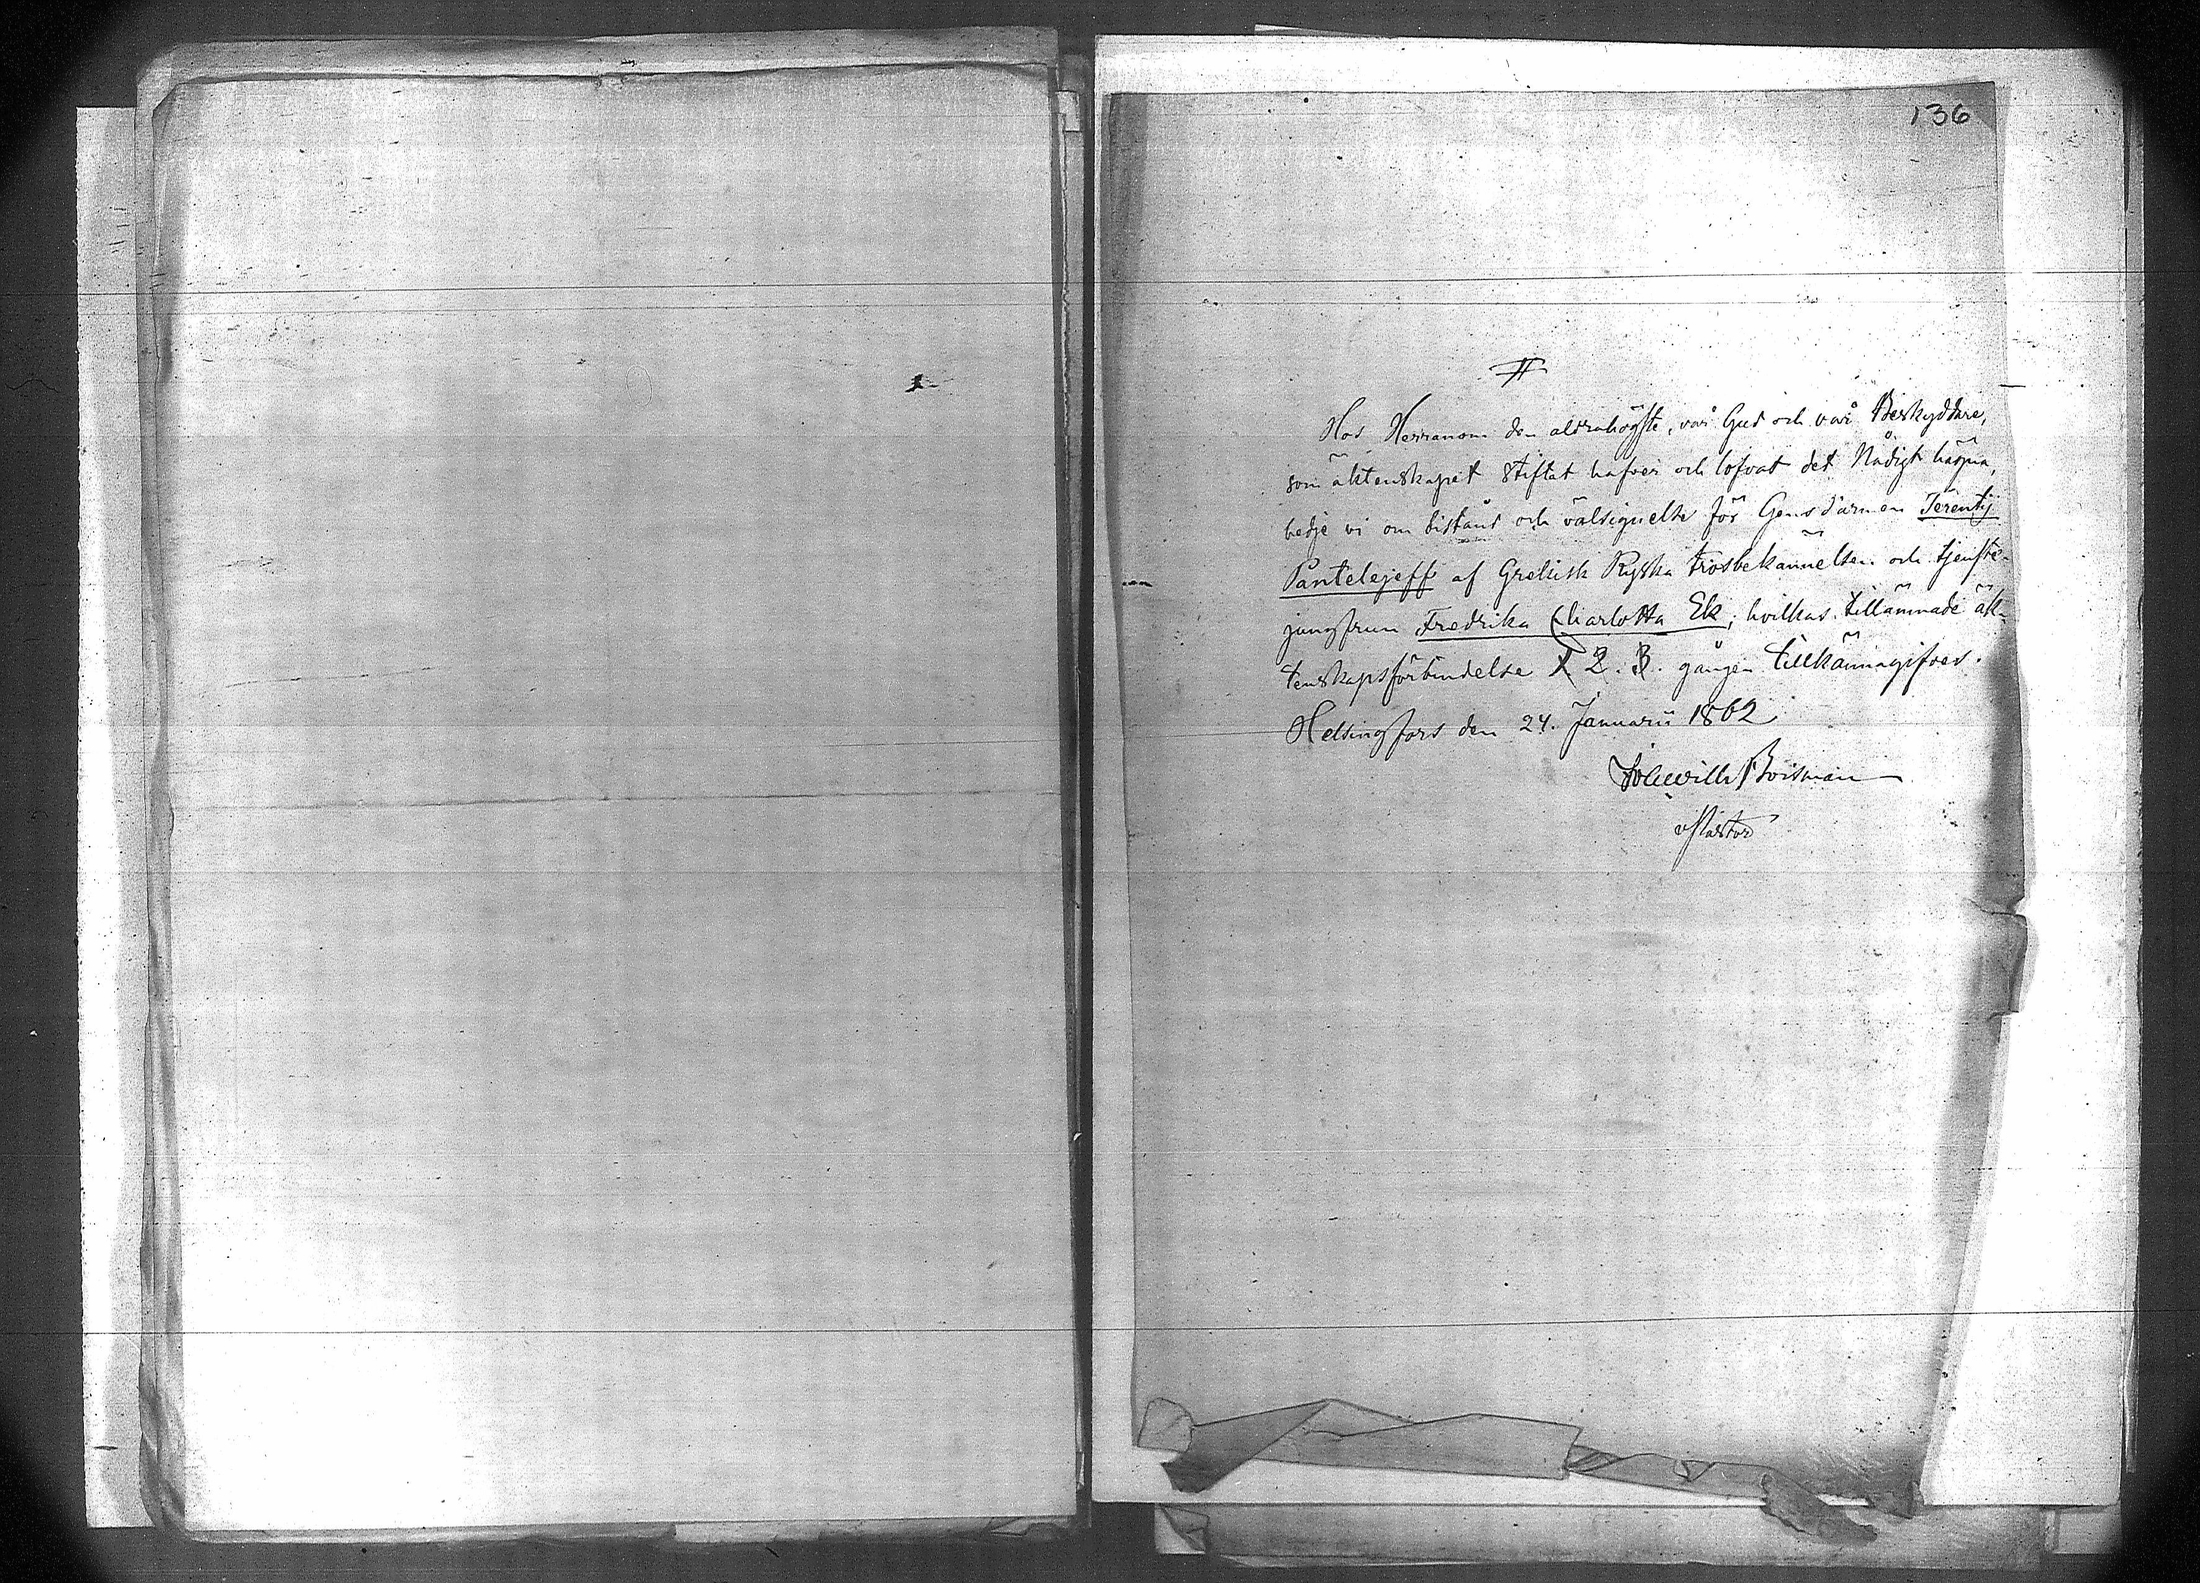 136
Hos Herranom den aldrahögste, vår Gud och vår Beskyddare,
som äktenskapet stiftat hafver och lofvat det Nådigt hägna,
bedje vi om bistånd och välsignelse för Gensdarmen Terentij
Pantelejeff af Grekisk Ryska trosbekännelsen och tjenste-
jungfrun Fredrika Charlotta Ek, hvilkas tillämnade äk-
tenskapsförbindelse 1. 2. 3. gången tillkännagifves.
Helsingfors den 24. Januarii 1862
Boisman
vPastor